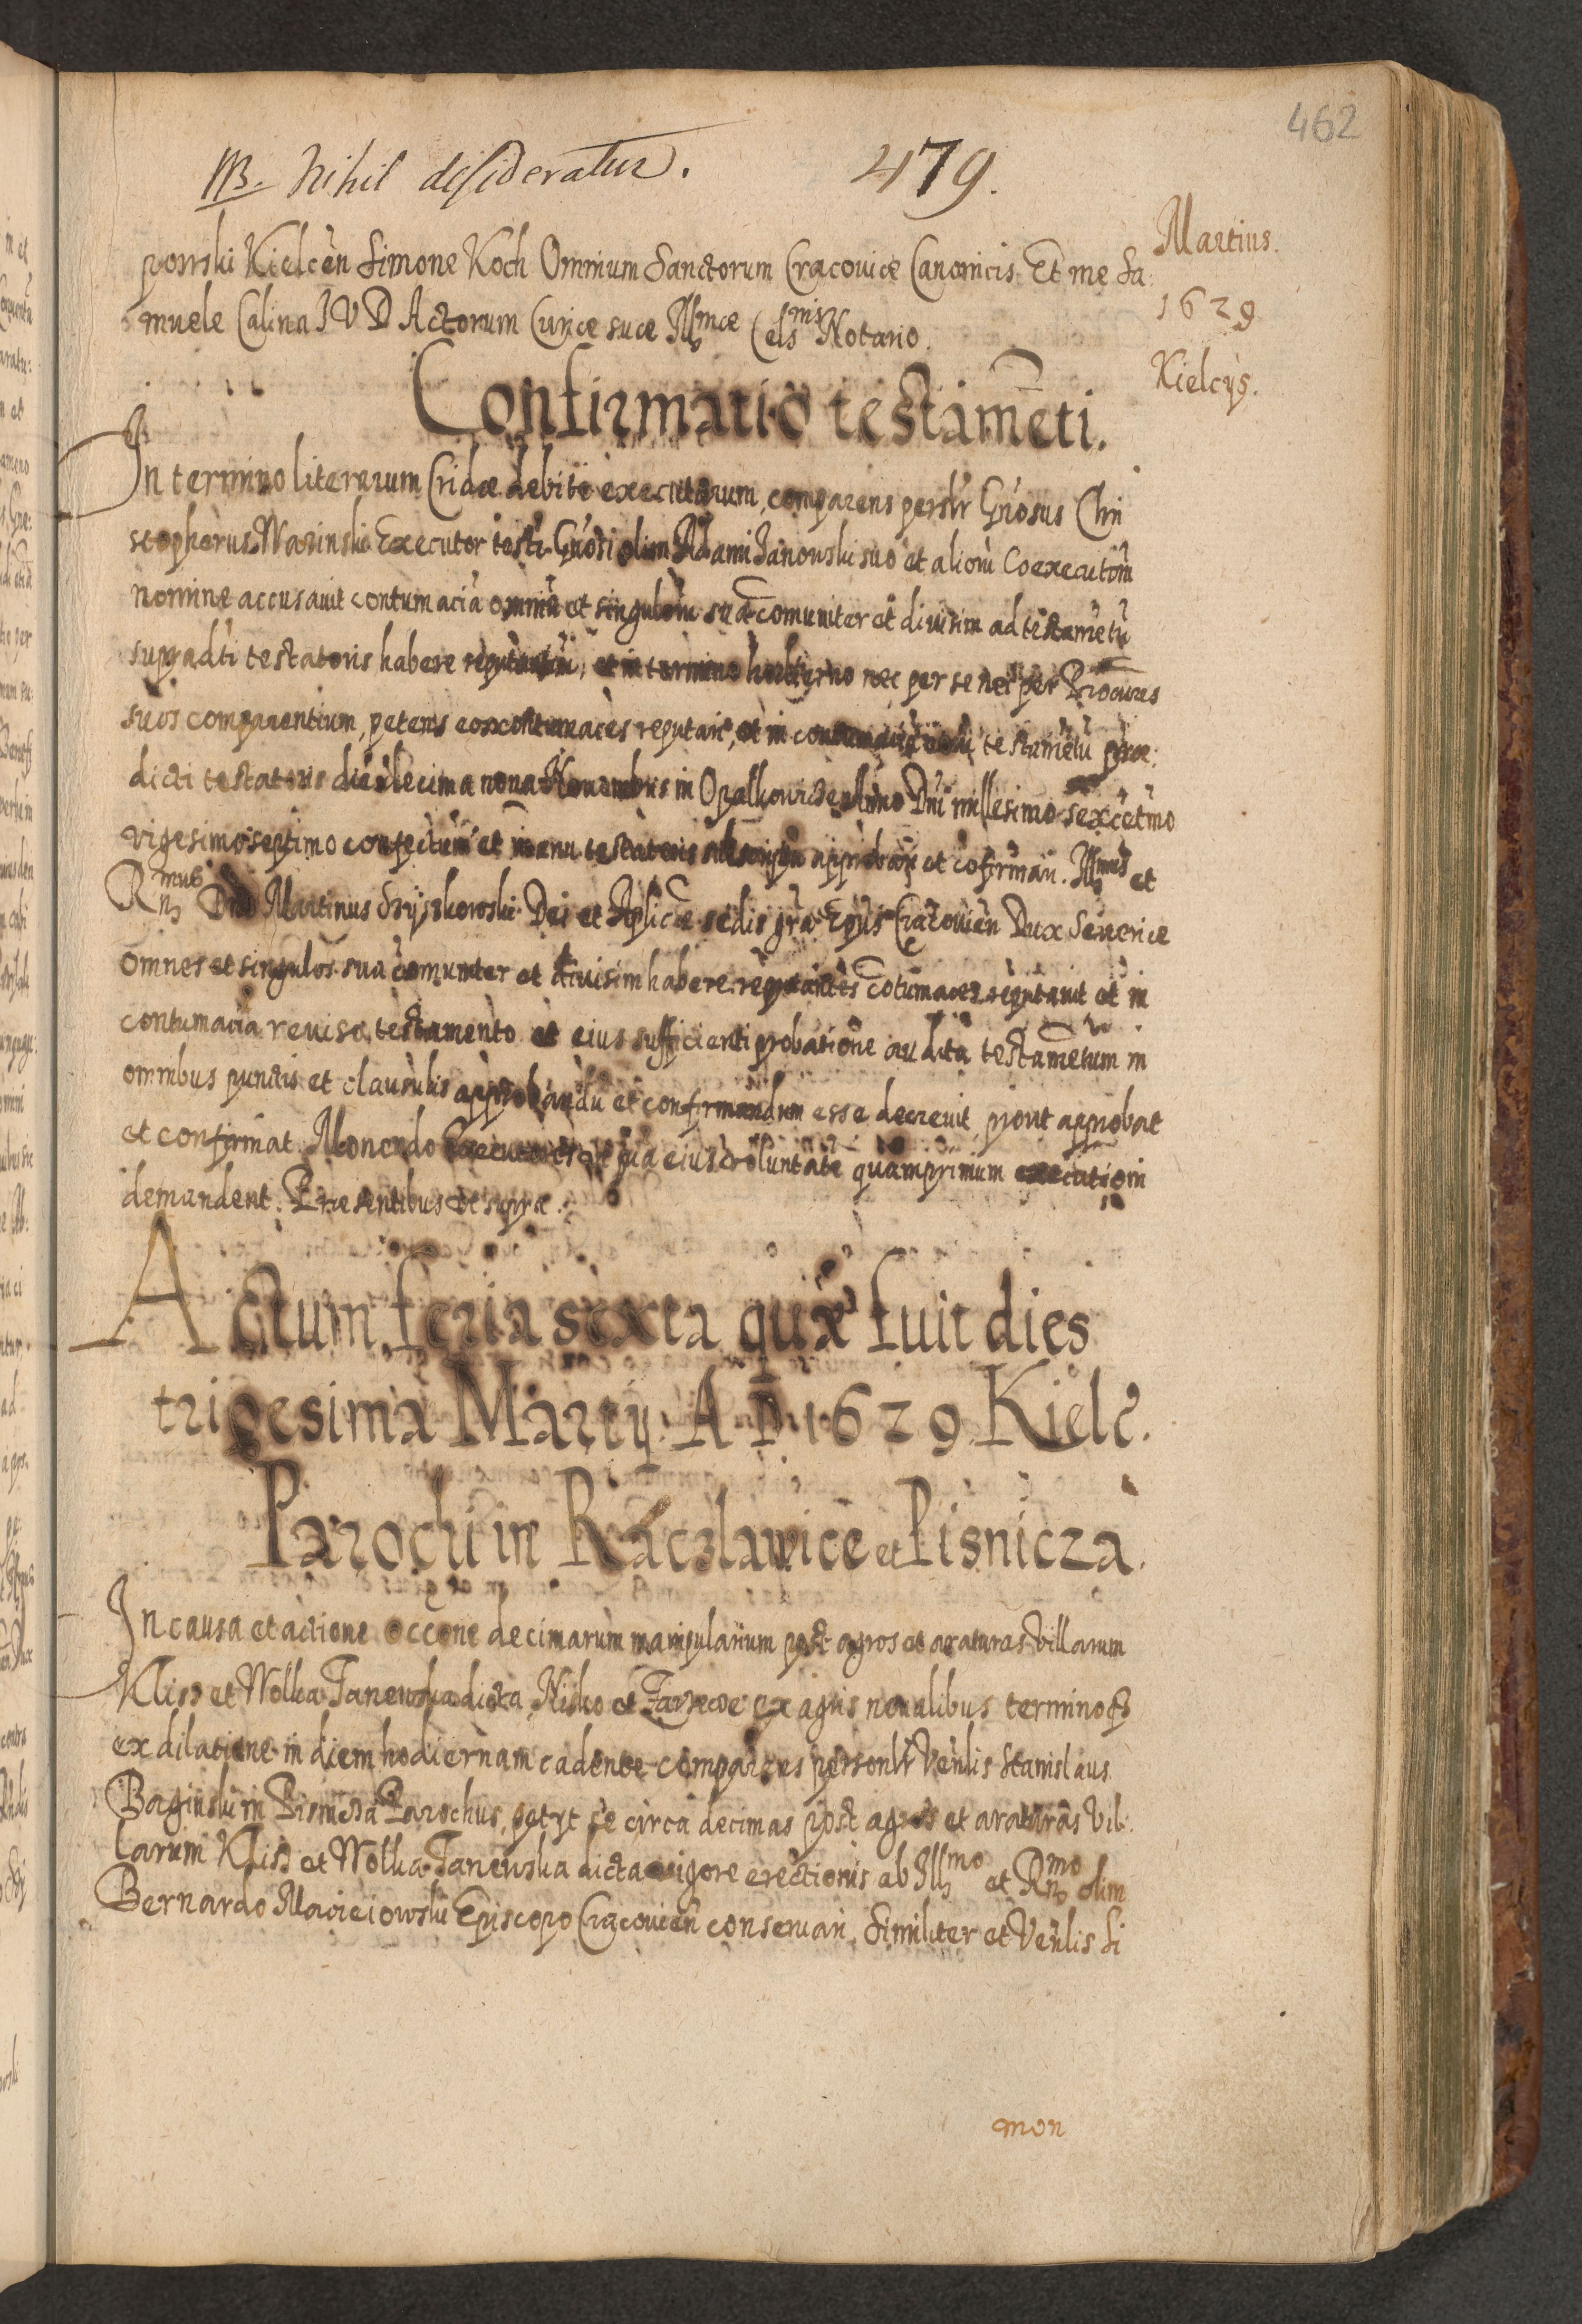 462
NB. Nihil desideratur. 479.
Martius.
1629
Kielcijs.
powski Kielcen̄ Simone Koch Omnium Sanctorum Cracoviæ Canonicis Et me Sa
muele Calina I V D Actorum Curiæ suæ Illmæ Celsnis Notario.
Confirmatio testamēti.
In termino literarum Cridæ debite executarum, comparens persłr Gn̄osus Chri
stopherus Warinski Executor testi Gn̄osi olim Adami Janowski suo et aliorū Coexecutorū
nomine accusavit contumaciā omniū et singulorū suā comuniter et divisim ad testamētū
supradti testatoris habere reputantiū, et in termino hodierno nec per se nec per Procures
suos comparentium, petens eos contumaces reputari, et in contumaciā eorū testamētū præ:
dicti testatoris die decima nona Novembris in Opalkowice Anno Dn̄i millesimo sexcētmo
vigesimo septimo confectum et manu testatoris subscriptū approbari et cōfirmari. Illmus et
Rnmus Dn̄s Martinus Szyszkowski Dei et Aplicæ sedis gr̄a Ep̄us Cracovien̄ Dux Severiæ
omnes et singulos sua comuniter et divisim habere reputantes cōtumaces reputavit et in
contumacia reviso testamento et eius sufficienti probatione audita testamētum in
omnibus punctis et clausulis approbandū et confirmandum esse decrevit, prout approbat
et confirmat. Monendo Executores ut piā eius voluntatē quamprimum executioni
demandent. Præsentibus ut supra.
Actum feria sexta quæ fuit dies
trigesima Martij A D 1629 Kielc.
Parochi in Raczlawice et Pisnicza.
In causa et actione occone decimarum manipularium post agros et araturas villarum
Klisz et Wolka Tanewska dicta, Nisko et ex agris novalibus termino
ex dilatione in diem hodiernam cadente comparens personłr Ven̄lis Stanislaus
Baginski in Parochus, petyt se circa decimas post agros et araturas vil:
larum Klisz et Wolka Tanewska dicta vigore erectionis ab Illmo et Rnmo olim
Bernardo Macieiowski Episcopo Cracovien̄ conservari. Similiter et Ven̄lis Si
mon